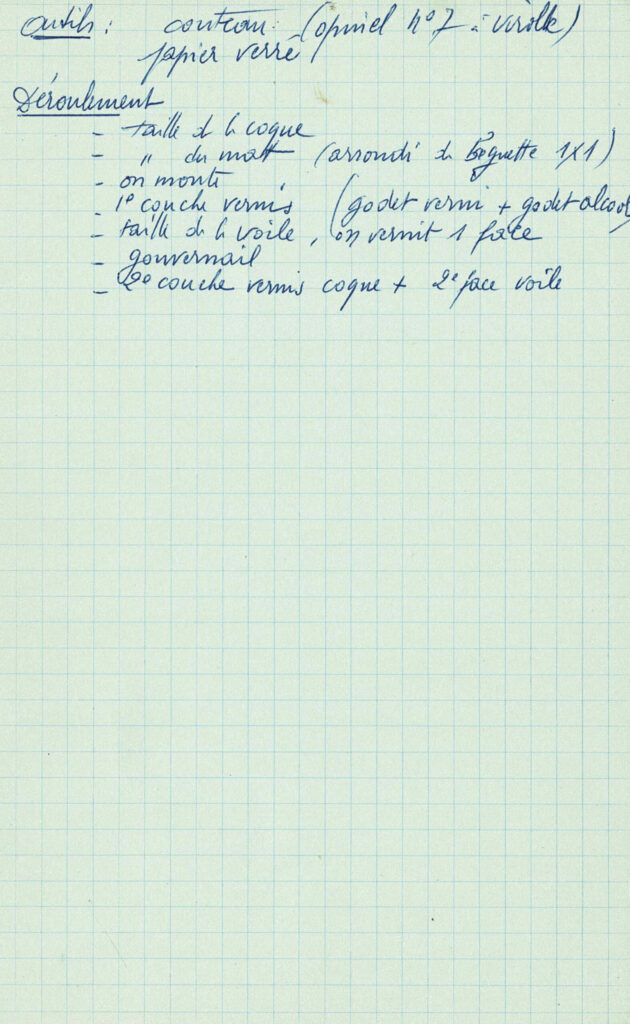 outils : couteau (opinel n° 7 à virolle)
papier verre
Déroulement
- taille de la coque
- " du matt (arrondi de baguette 1x1)
- on monte
- 1e couche vernis (godet verni + godet alcool)
- taille de la voile, on vernit 1 face
- gouvernail
- 2e couche vernis coque + 2e face voile